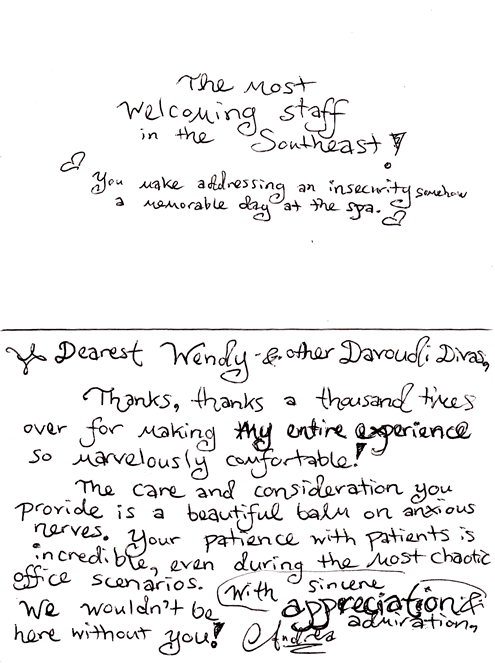 The Most
Welcoming staff
in the Southeast!
You make addressing an insecurity somehow
a memorable day at the spa.
Dearest Wendy & other Davoudi Divas,
Thanks, thanks a thousand times
over for making my entire experience
so marvelously comfortable!
The care and consideration you
provide is a beautiful balm on anxious
nerves. Your patience with patients is
incredible, even during the most chaotic
office scenarios.
We wouldn't be
here without you!
With sincere
appreciation &
admiration,
Andrea